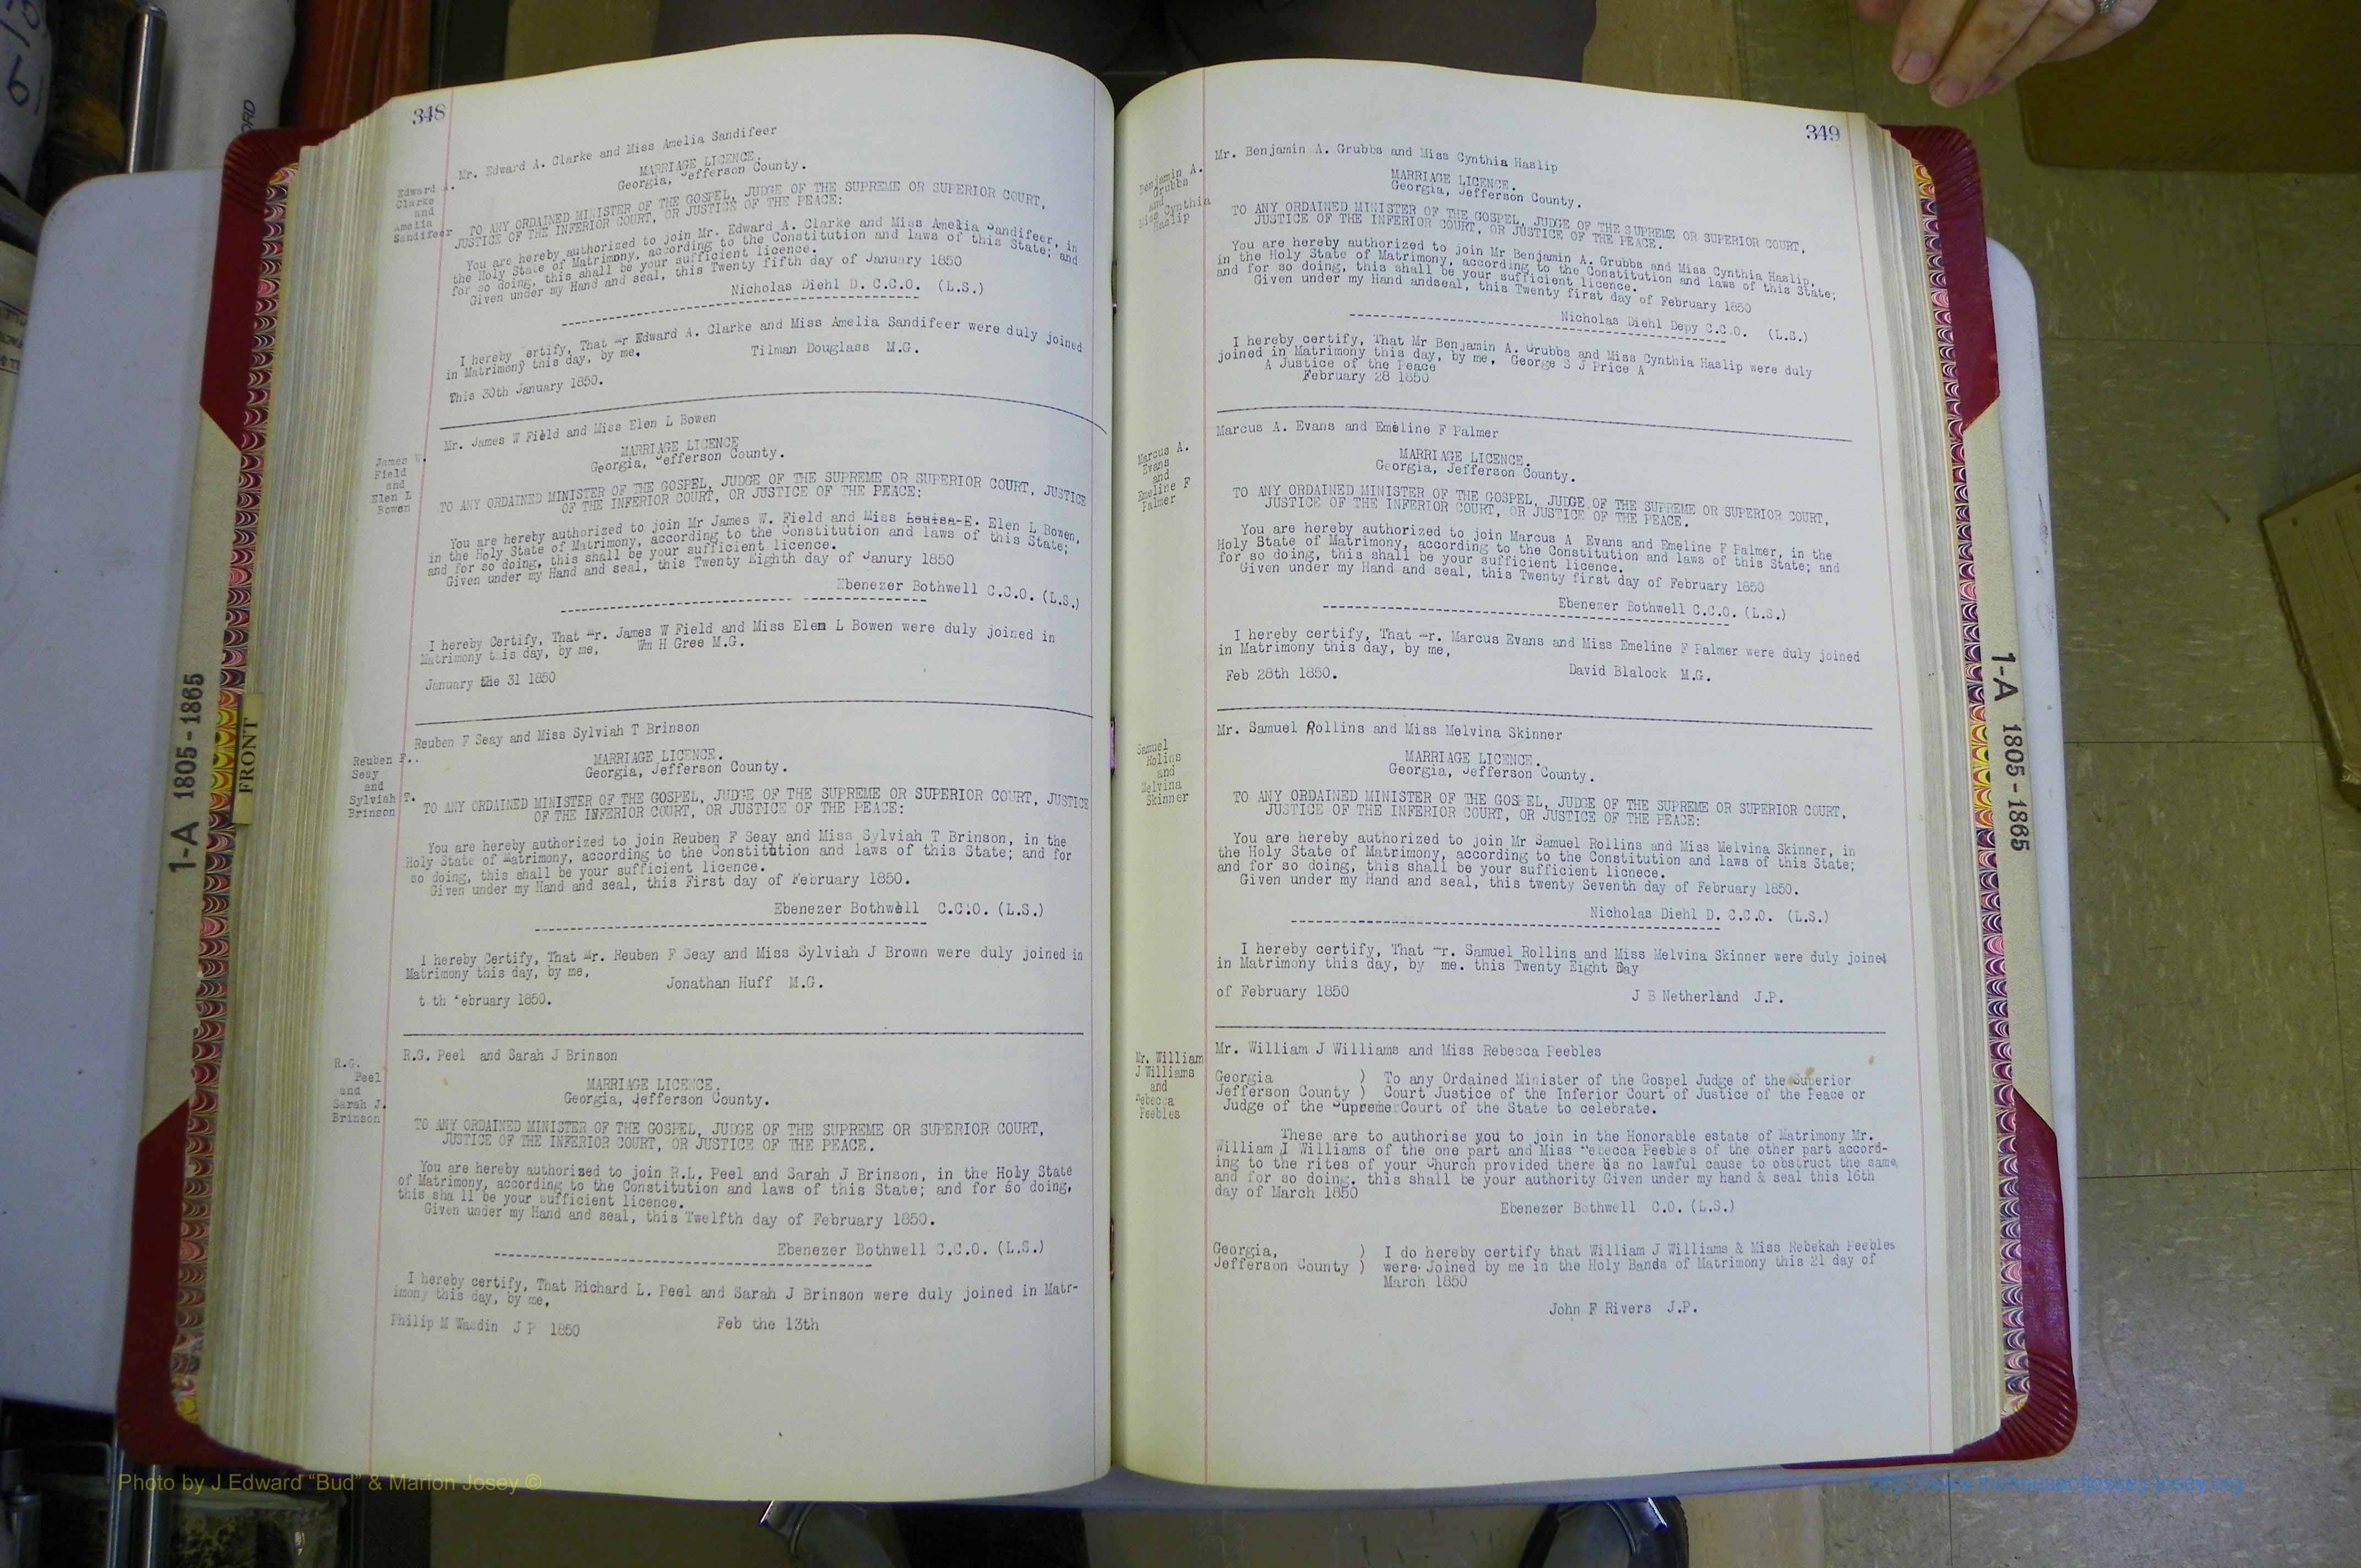 348
Mr. Edward A. Clarke and Miss Amelia Sandifeer
MARRIAGE LICENCE.
Georgia, Jefferson County.
Edward A.
Clarke
and
Amelia
Sandifeer
TO ANY ORDAINED MINISTER OF THE GOSPEL, JUDGE OF THE SUPREME OR SUPERIOR COURT,
JUSTICE OF THE INFERIOR COURT, OR JUSTICE OF THE PEACE:
You are hereby authorized to join Mr. Edward A. Clarke and Miss Amelia Sandifeer, in
the Holy State of Matrimony, according to the Constitution and laws of this State; and
for so doing, this shall be your sufficient licence.
Given under my Hand and seal, this Twenty fifth day of January 1850
Nicholas Diehl D. C.C.O. (L.S.)
I hereby ertify, That Mr Edward A. Clarke and Miss Amelia Sandifeer were duly joined
in Matrimony this day, by me.
Tilman Douglass M.G.
This 30th January 1850.
Mr. James W Field and Miss Elen L Bowen
MARRIAGE LICENCE
Georgia, Jefferson County.
James W.
Field
and
Elen L
Bowen
TO ANY ORDAINED MINISTER OF THE GOSPEL, JUDGE OF THE SUPREME OR SUPERIOR COURT, JUSTICE
OF THE INFERIOR COURT, OR JUSTICE OF THE PEACE:
You are hereby authorized to join Mr James W. Field and Miss Louisa E. Elen L Bowen,
in the Holy State of Matrimony, according to the Constitution and laws of this State;
and for so doing, this shall be your sufficient licence.
Given under my Hand and seal, this Twenty Eighth day of Janury 1850
Ebenezer Bothwell C.C.O. (L.S.)
I hereby Certify, That Mr. James W Field and Miss Elen L Bowen were duly joined in
Matrimony this day, by me, Wm H Gree M.G.
January the 31 1850
Reuben F Seay and Miss Sylviah T Brinson
MARRIAGE LICENCE.
Georgia, Jefferson County.
Reuben F..
Seay
and
Sylviah T.
Brinson
TO ANY ORDAINED MINISTER OF THE GOSPEL, JUDGE OF THE SUPREME OR SUPERIOR COURT, JUSTICE
OF THE INFERIOR COURT, OR JUSTICE OF THE PEACE:
You are hereby authorized to join Reuben F Seay and Miss Sylviah T Brinson, in the
Holy State of Matrimony, according to the Constitution and laws of this State; and for
so doing, this shall be your sufficient licence.
Given under my Hand and seal, this First day of February 1850.
Ebenezer Bothwell C.C.O. (L.S.)
I hereby Certify, That Mr. Reuben F Seay and Miss Sylviah J Brown were duly joined in
Matrimony this day, by me,
Jonathan Huff M.G.
th February 1850.
R.G. Peel and Sarah J Brinson
R.G.
Peel
and
Sarah J.
Brinson
MARRIAGE LICENCE.
Georgia, Jefferson County.
TO ANY ORDAINED MINISTER OF THE GOSPEL, JUDGE OF THE SUPREME OR SUPERIOR COURT,
JUSTICE OF THE INFERIOR COURT, OR JUSTICE OF THE PEACE.
You are hereby authorized to join R.L. Peel and Sarah J Brinson, in the Holy State
of Matrimony, according to the Constitution and laws of this State; and for so doing,
this sha ll be your sufficient licence.
Given under my Hand and seal, this Twelfth day of February 1850.
Ebenezer Bothwell C.C.O. (L.S.)
I hereby certify, That Richard L. Peel and Sarah J Brinson were duly joined in Matr-
imony this day, by me,
Philip M J P 1850 Feb the 13th
349
Mr. Benjamin A. Grubbs and Miss Cynthia Haslip
Benjamin A.
Grubbs
and
Miss Cynthia
Haslip
MARRIAGE LICENCE.
Georgia, Jefferson County.
TO ANY ORDAINED MINISTER OF THE GOSPEL, JUDGE OF THE SUPREME OR SUPERIOR COURT,
JUSTICE OF THE INFERIOR COURT, OR JUSTICE OF THE PEACE.
You are hereby authorized to join Mr Benjamin A. Grubbs and Miss Cynthia Haslip,
in the Holy State of Matrimony, according to the Constitution and laws of this State;
and for so doing, this shall be your sufficient licence.
Given under my Hand andseal, this Twenty first day of February 1850
Nicholas Diehl Depy C.C.O. (L.S.)
I hereby certify, That Mr Benjamin A. Grubbs and Miss Cynthia Haslip were duly
joined in Matrimony this day, by me, George S J Price A
A Justice of the Peace
February 28 1850
Marcus A. Evans and Emeline F Palmer
Marcus A.
Evans
and
Emeline F
Palmer
MARRIAGE LICENCE.
Georgia, Jefferson County.
TO ANY ORDAINED MINISTER OF THE GOSPEL, JUDGE OF THE SUPREME OR SUPERIOR COURT,
JUSTICE OF THE INFERIOR COURT, OR JUSTICE OF THE PEACE.
You are hereby authorized to join Marcus A Evans and Emeline F Palmer, in the
Holy State of Matrimony, according to the Constitution and laws of this State; and
for so doing, this shall be your sufficient licence.
Given under my Hand and seal, this Twenty first day of February 1850
Ebenezer Bothwell C.C.O. (L.S.)
I hereby certify, That Mr. Marcus Evans and Miss Emeline F Palmer were duly joined
in Matrimony this day, by me,
Feb 28th 1850. David Blalock M.G.
Mr. Samuel Rollins and Miss Melvina Skinner
Samuel
Rolins
and
Melvina
Skinner
MARRIAGE LICENCE.
Georgia, Jefferson County.
TO ANY ORDAINED MINISTER OF THE GOSPEL, JUDGE OF THE SUPREME OR SUPERIOR COURT,
JUSTICE OF THE INFERIOR COURT, OR JUSTICE OF THE PEACE:
You are hereby authorized to join Mr Samuel Rollins and Miss Melvina Skinner, in
the Holy State of Matrimony, according to the Constitution and laws of this State;
and for so doing, this shall be your sufficient licnece.
Given under my Hand and seal, this twenty Seventh day of February 1850.
Nicholas Diehl D. C.C.O. (L.S.)
I hereby certify, That Mr. Samuel Rollins and Miss Melvina Skinner were duly joined
in Matrimony this day, by me. this Twenty Eight Day
of February 1850 J B Netherland J.P.
Mr. William J Williams and Miss Rebecca Peebles
Mr. William
J Williams
and
Rebecca
Peebles
Georgia ) To any Ordained Minister of the Gospel Judge of the Superior
Jefferson County ) Court Justice of the Inferior Court of Justice of the Peace or
Judge of the Supreme Court of the State to celebrate.
These are to authorise you to join in the Honorable estate of Matrimony Mr.
William J Williams of the one part and Miss Rebecca Peebles of the other part accord-
ing to the rites of your Church provided there is no lawful cause to obstruct the same,
and for so doing, this shall be your authority Given under my hand & seal this 16th
day of March 1850
Ebenezer Bothwell C.O. (L.S.)
Georgia, ) I do hereby certify that William J Williams & Miss Rebekah Peebles
Jefferson County ) were Joined by me in the Holy Bands of Matrimony this 21 day of
March 1850
John F Rivers J.P.
1-A 1805-1865
FRONT
1-A 1805-1865
Photo by J Edward “Bud” & Marion Josey ©
http://www.thehouseofjossey-josey.org